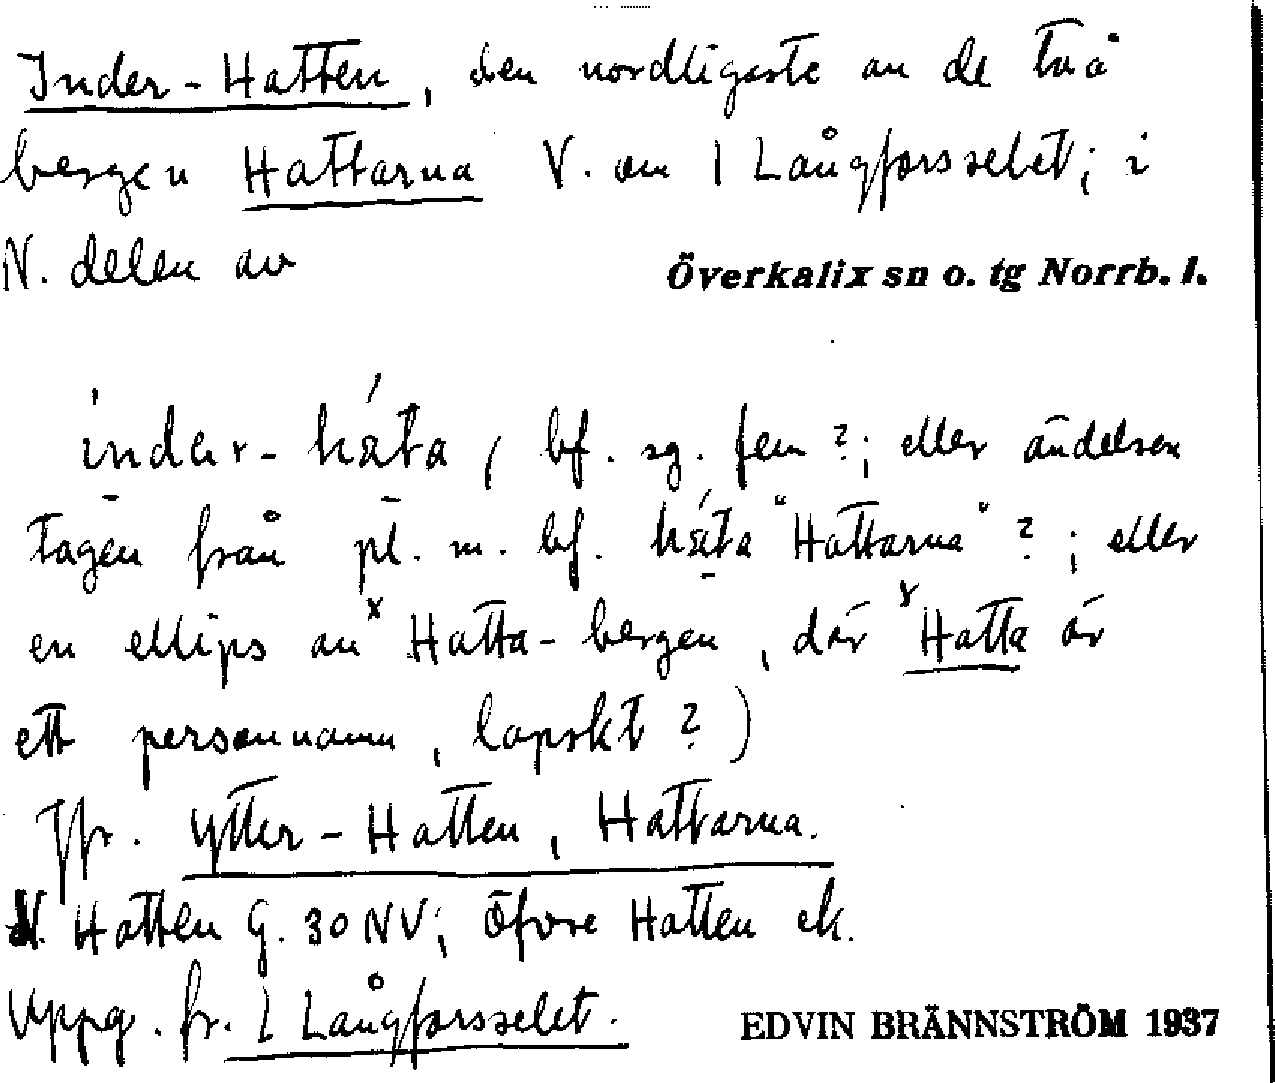 Inder-Hatten, den nordligaste av de två
bergen Hattarna V. om 1 Långforsselet; i
N. delen av
Överkalix sn o. tg Norrb. l.
ìndər-háta ( bf. sg. fem?; eller ändelsen
tagen från pl. m. bf. háta "Hattarna" ?; eller
en ellips av x Hatta-bergen, där x Hatta är
ett personnamn, lapskt ?)
Jfr. Ytter-Hatten, Hattarna.
N. Hatten G. 30 NV; Öfvre Hatten ek.
Uppg. fr. 1 Långforsselet.
EDVIN BRÄNNSTRÖM 1937